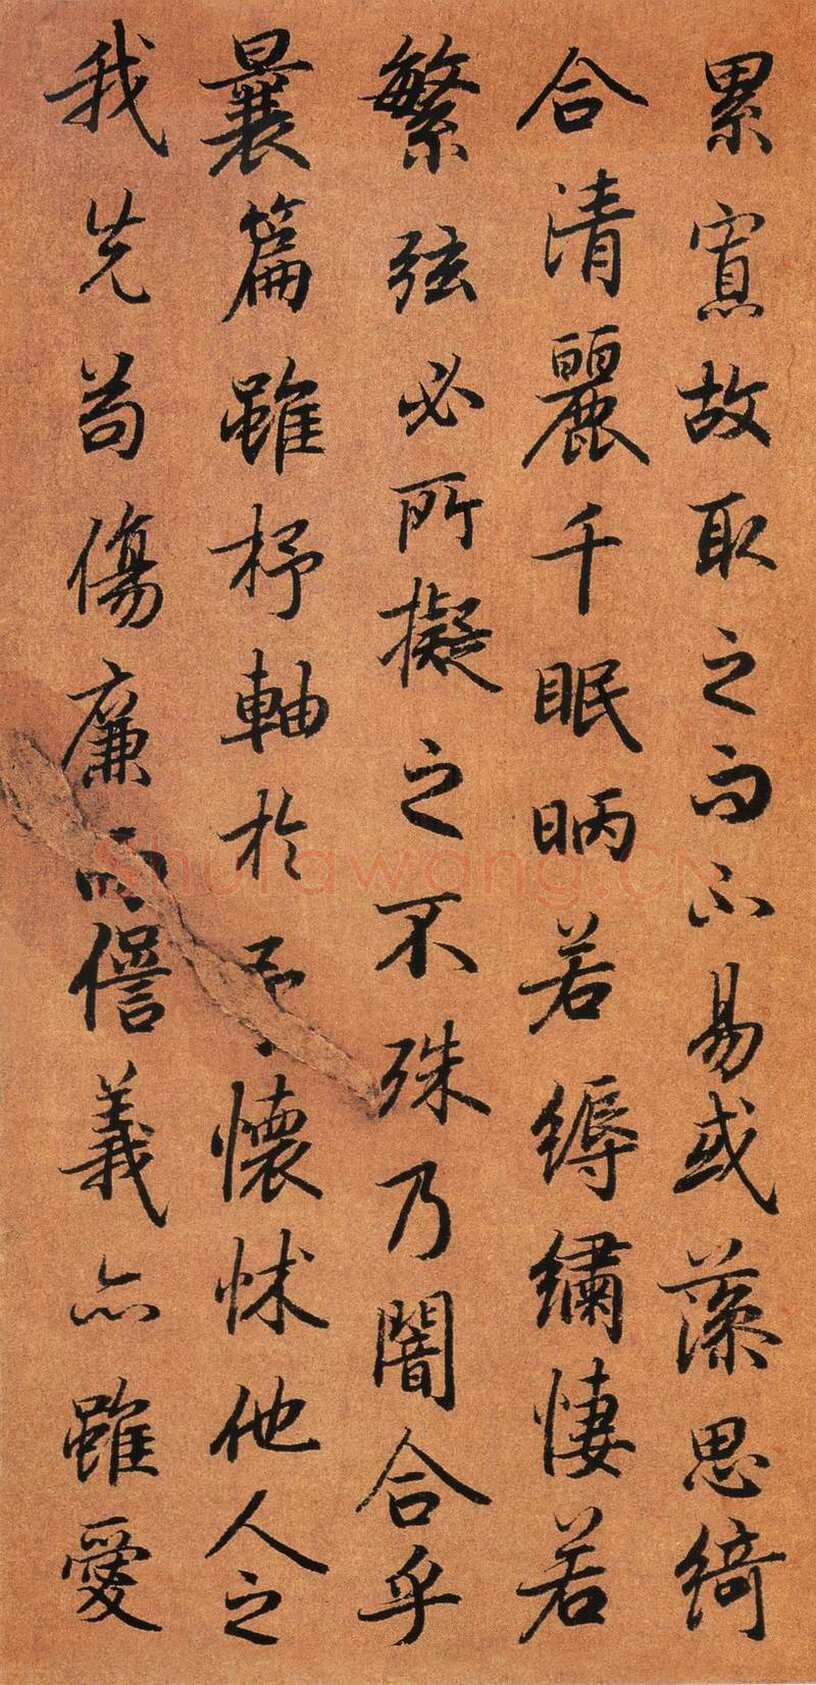 累寡故取之而不易或藻思綺
合清麗千眠昞若縟繡悽若
繁弦必所擬之不殊乃闇合乎
曩篇雖杼軸於予懷怵他人之
我先苟傷廉而諐義亦雖愛
Shufawang.CN